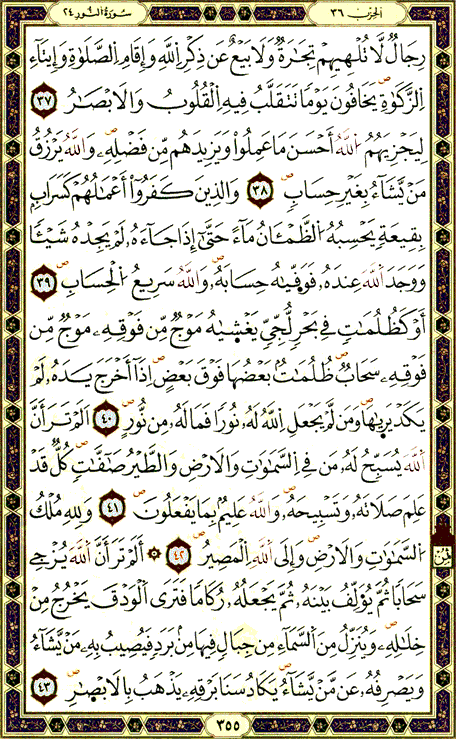 سُورَةُ النُّور ٢٤
الحِزْب ٣٦
رِجَالٌ لَّا تُلْهِيهِمْ تِجَٰرَةٌ وَلَا بَيْعٌ عَن ذِكْرِ اِ۬للَّهِ وَإِقَامِ اِ۬لصَّلَوٰةِ وَإِيتَآءِ
اِ۬لزَّكَوٰةِ يَخَافُونَ يَوْمًا تَتَقَلَّبُ فِيهِ اِ۬لْقُلُوبُ وَالَابْصَٰرُ ٣٧
لِيَجْزِيَهُمُ اُ۬للَّهُ أَحْسَنَ مَا عَمِلُوا۟ وَيَزِيدَهُم مِّن فَضْلِهِۦ وَاللَّهُ يَرْزُقُ
مَنْ يَّشَآءُ بِغَيْرِ حِسَابٍ ٣٨ وَالذِينَ كَفَرُوٓا۟ أَعْمَٰلُهُمْ كَسَرَابٍ
بِقِيعَةٍ يَحْسِبُهُ اُ۬لظَّمْـَٔانُ مَآءً حَتَّىٰٓ إِذَا جَآءَهُۥ لَمْ يَجِدْهُ شَيْـًٔا
وَوَجَدَ اَ۬للَّهَ عِندَهُۥ فَوَفَّيٰهُ حِسَابَهُۥ وَاللَّهُ سَرِيعُ اُ۬لْحِسَابِ ٣٩
أَوْ كَظُلُمَٰتٍ فِي بَحْرٍ لُّجِّيٍّ يَغْشَيٰهُ مَوْجٌ مِّن فَوْقِهِۦ مَوْجٌ مِّن
فَوْقِهِۦ سَحَابٌ ظُلُمَٰتٌ بَعْضُهَا فَوْقَ بَعْضٍ إِذَآ أَخْرَجَ يَدَهُۥ لَمْ
يَكَدْ يَرَيٰهَا وَمَن لَّمْ يَجْعَلِ اِ۬للَّهُ لَهُۥ نُورًا فَمَا لَهُۥ مِن نُّورٍ ٤٠ اَلَمْ تَرَ أَنَّ
اَ۬للَّهَ يُسَبِّحُ لَهُۥ مَن فِي اِ۬لسَّمَٰوَٰتِ وَالَارْضِ وَالطَّيْرُ صَٰٓفَّٰتٍ كُلٌّ قَدْ
عَلِمَ صَلَاتَهُۥ وَتَسْبِيحَهُۥ وَاللَّهُ عَلِيمٌ بِمَا يَفْعَلُونَ ٤١ وَلِلهِ مُلْكُ
اُ۬لسَّمَٰوَٰتِ وَالَارْضِ وَإِلَى اَ۬للَّهِ اِ۬لْمَصِيرُ ٤٢ ۞ أَلَمْ تَرَ أَنَّ اَ۬للَّهَ يُزْجِي
سَحَابًا ثُمَّ يُؤَلِّفُ بَيْنَهُۥ ثُمَّ يَجْعَلُهُۥ رُكَامًا فَتَرَى اَ۬لْوَدْقَ يَخْرُجُ مِنْ
خِلَٰلِهِۦ وَيُنَزِّلُ مِنَ اَ۬لسَّمَآءِ مِن جِبَالٍ فِيهَا مِنۢ بَرَدٍ فَيُصِيبُ بِهِۦ مَنْ يَّشَآءُ
وَيَصْرِفُهُۥ عَن مَّنْ يَّشَآءُ يَكَادُ سَنَا بَرْقِهِۦ يَذْهَبُ بِالَابْصٰ۪رِ ٤٣
٣٥٥